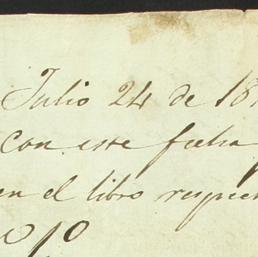 Julio 24 de 18
Con este fecha
en el libro respec